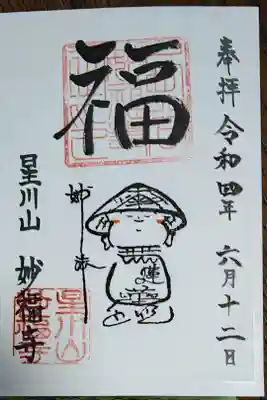 奉拝 令和四年 六月十二日
福
妙
蓮
星川山 妙福寺
星川山